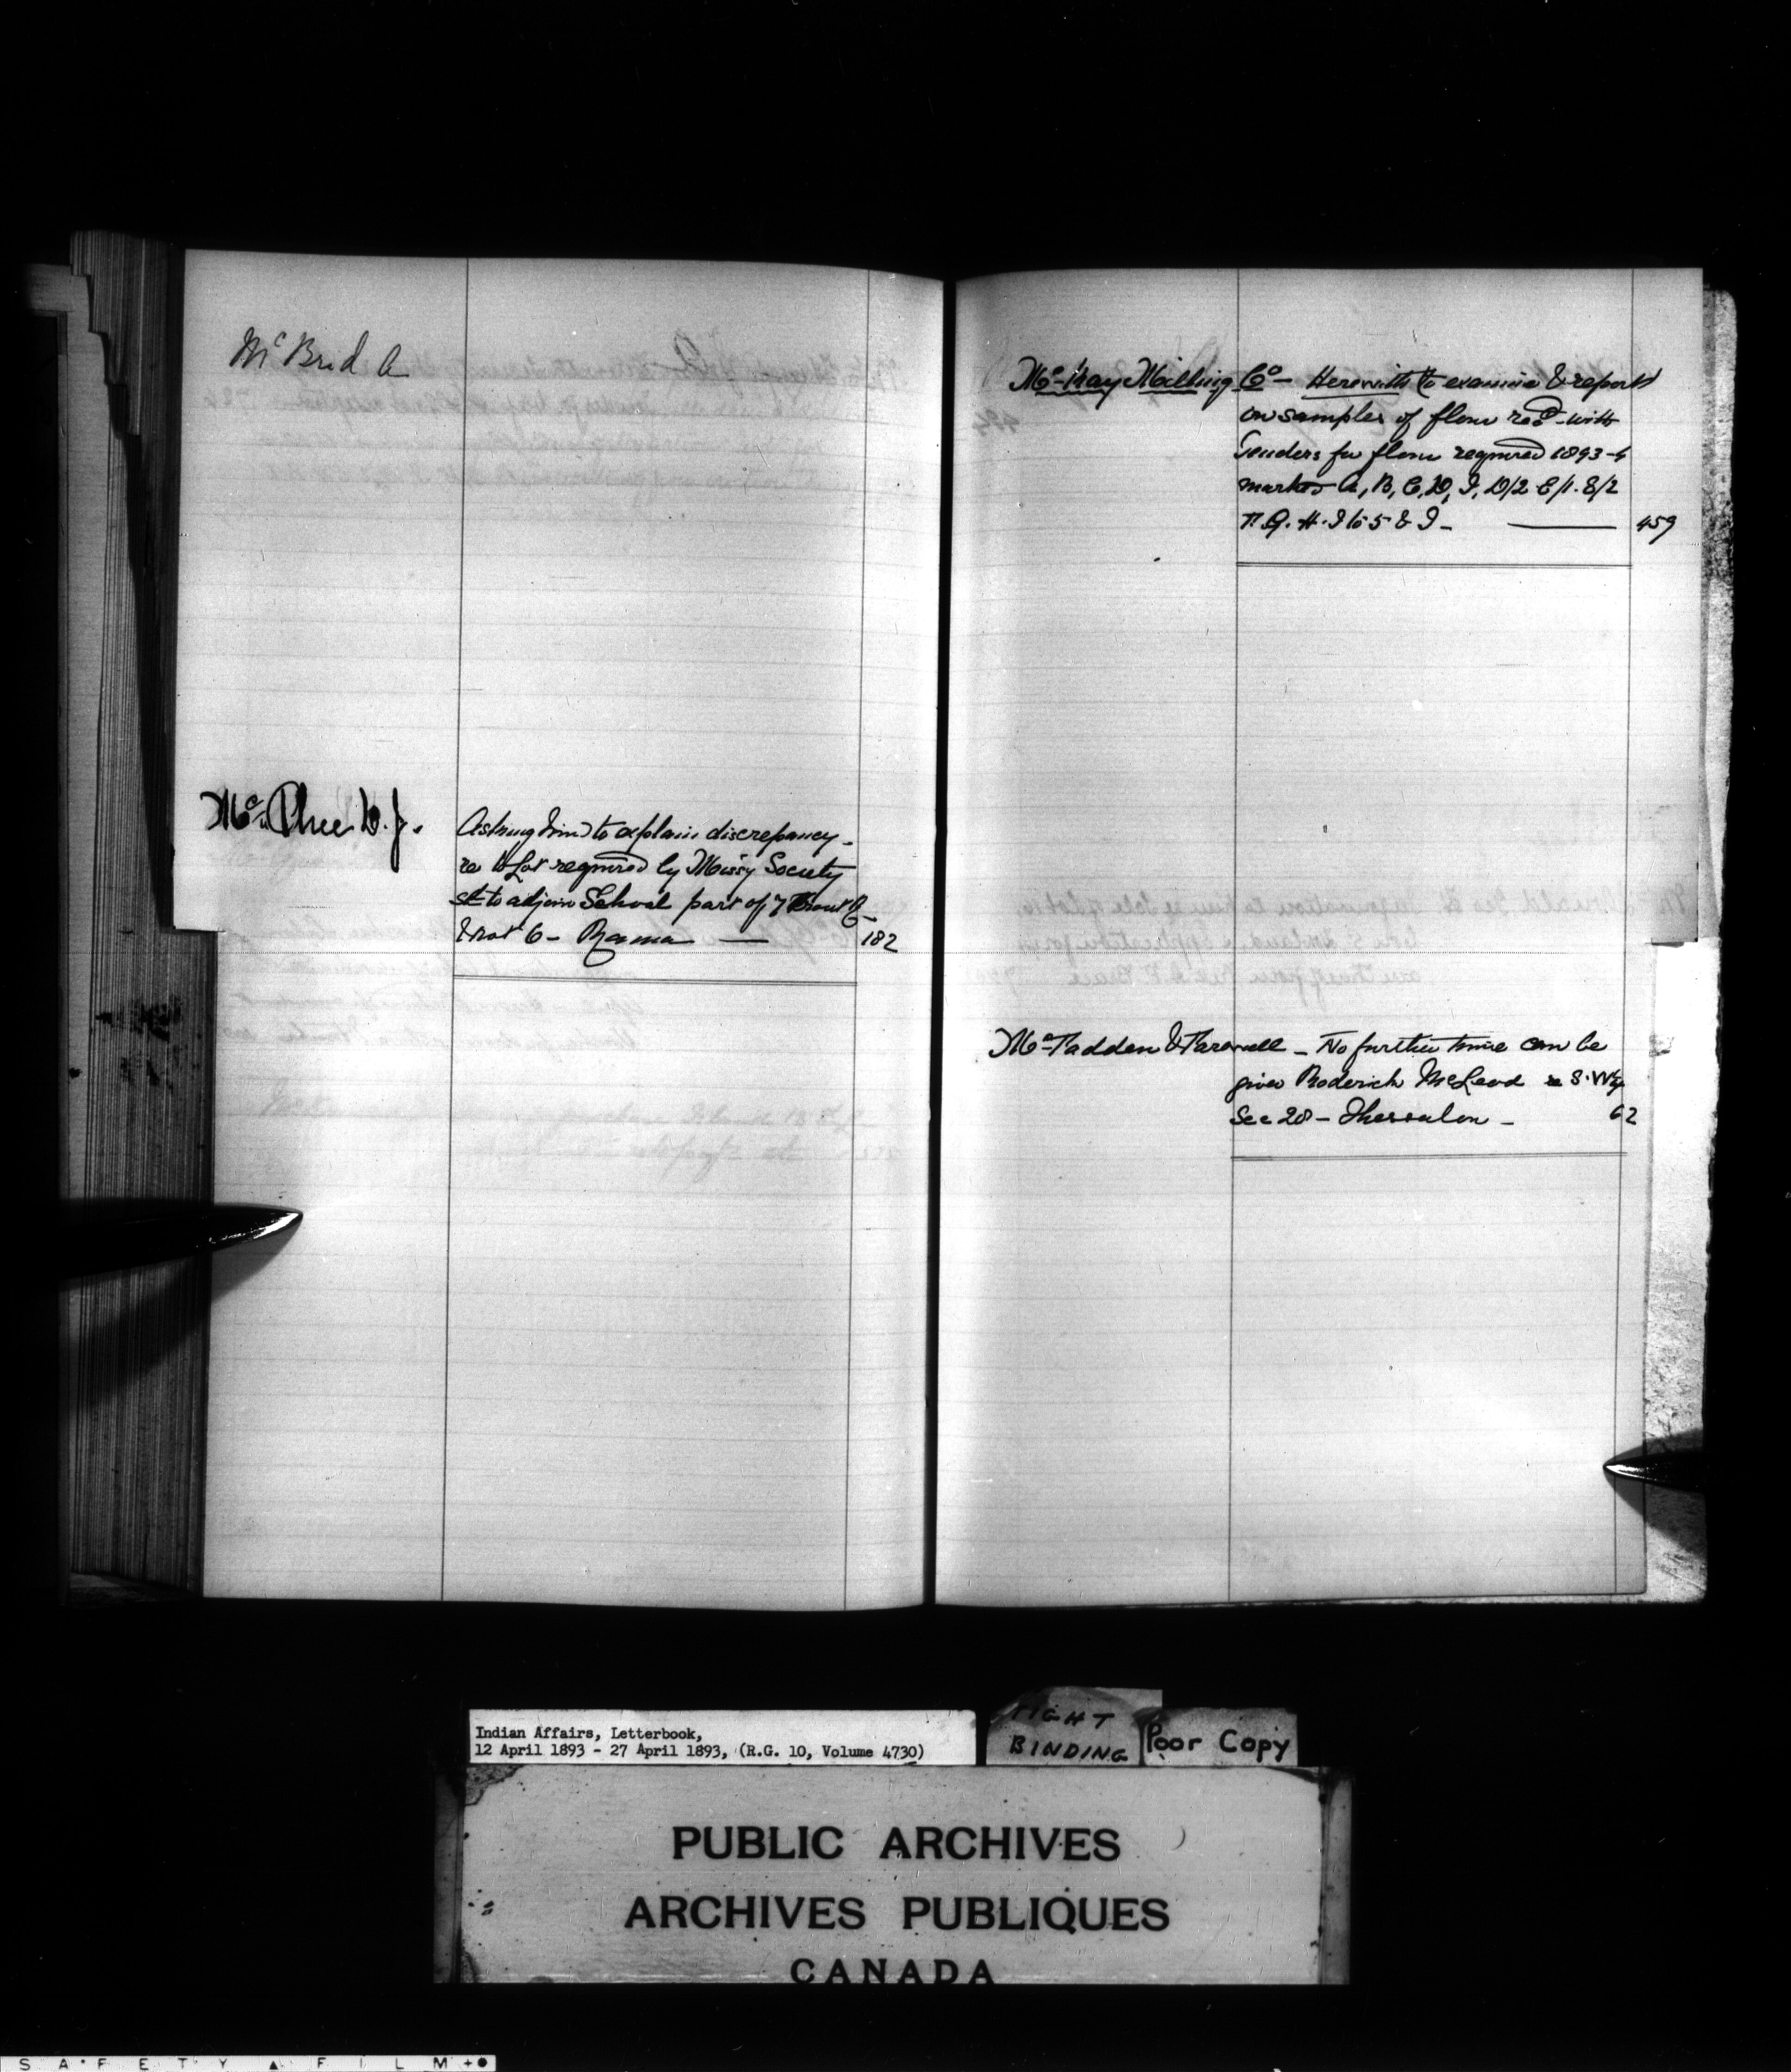 Mc Brid A
Mc Phee D. J.
Asking him to explain discrepancy -
re to Lot required by Missy Society
st to adjoin School part of 7 Front R -
& not 6 - Rama — 182
Mc Kay Milling Co - Herewith to examine & report
on samples of flour recd with
Tenders for flour required 1893-4
marked A, B, C, D, I, D/2 E/1. E/2
F. G. H. I to 5 & J - — 459
Mc Fadden & Farewell - No further time can be
given Roderick McLeod re S. W 1/4
Sec 28 - Thessalon - 62
Indian Affairs, Letterbook,
12 April 1893 - 27 April 1893, (R.G. 10, Volume 4730)
TIGHT
BINDING
Poor Copy
PUBLIC ARCHIVES
ARCHIVES PUBLIQUES
CANADA
SAFETY FILM